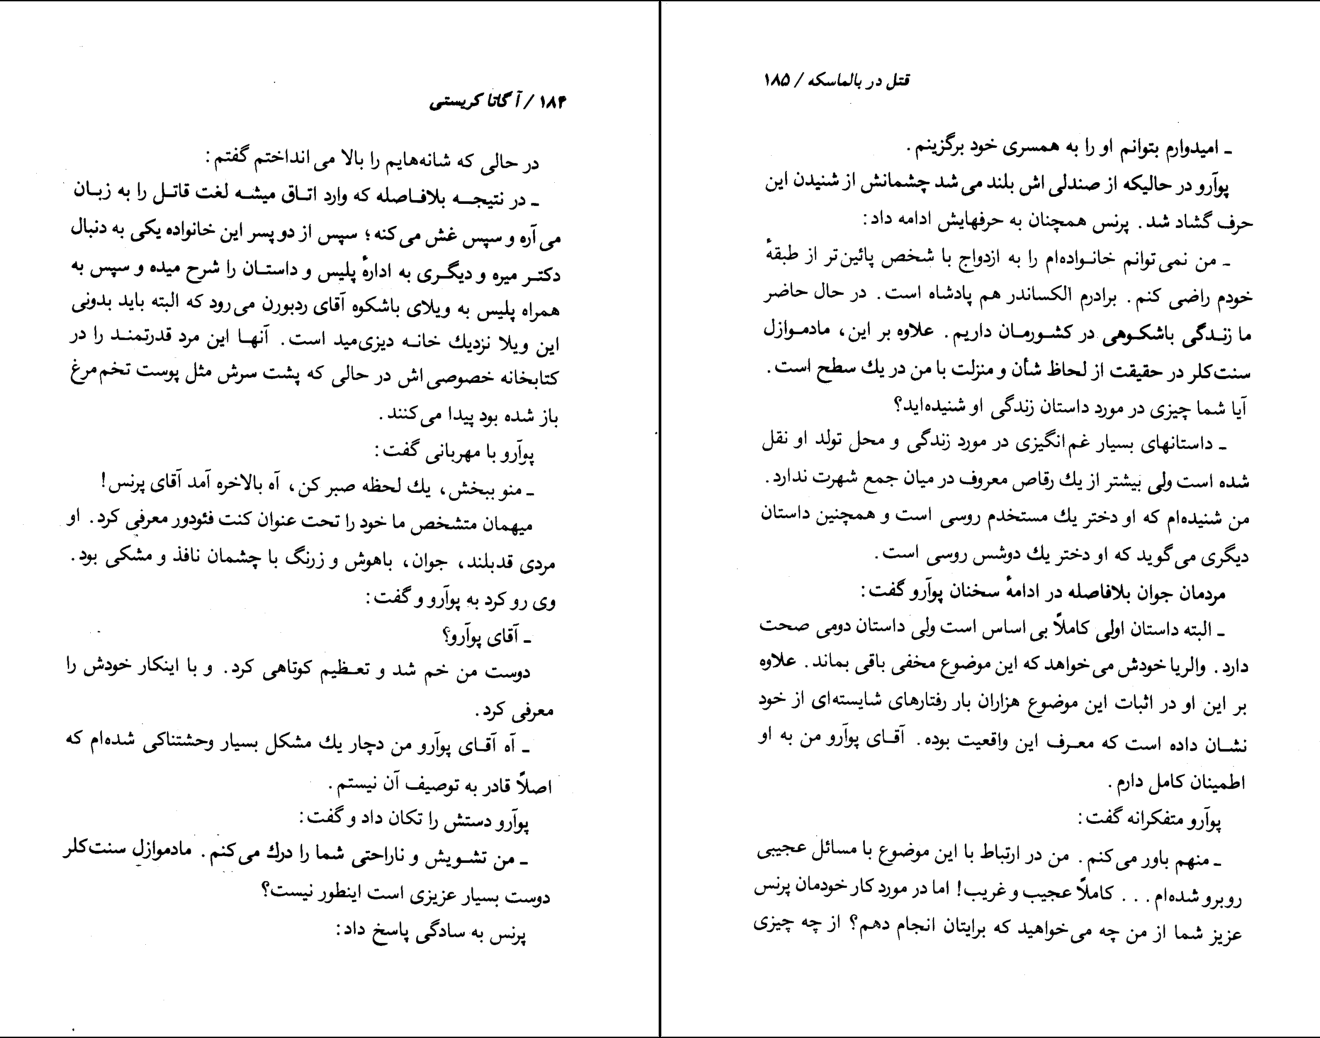 ۱۸۴ / آگاتا کریستی
در حالی که شانه‌هایم را بالا می‌انداختم گفتم:
ـ در نتیجه بلافاصله که وارد اتاق میشه لغت قاتل را به زبان
می‌آره و سپس غش می‌کنه؛ سپس از دو پسر این خانواده یکی به دنبال
دکتر میره و دیگری به ادارهٔ پلیس و داستان را شرح میده و سپس به
همراه پلیس به ویلای باشکوه آقای ردبورن می‌رود که البته باید بدونی
این ویلا نزدیك خانه دیزی‌مید است. آنها این مرد قدرتمند را در
کتابخانه خصوصی‌اش در حالی که پشت سرش مثل پوست تخم‌مرغ
باز شده بود پیدا می‌کنند.
پوآرو با مهربانی گفت:
ـ منو ببخش، یك لحظه صبر کن، آه بالاخره آمد آقای پرنس!
میهمان متشخص ما خود را تحت عنوان کنت فئودور معرفی کرد. او
مردی قدبلند، جوان، باهوش و زرنگ با چشمان نافذ و مشکی بود.
وی رو کرد به پوآرو و گفت:
ـ آقای پوآرو؟
دوست من خم شد و تعظیم کوتاهی کرد. و با اینکار خودش را
معرفی کرد.
ـ آه آقای پوآرو من دچار یك مشکل بسیار وحشتناکی شده‌ام که
اصلاً قادر به توصیف آن نیستم.
پوآرو دستش را تکان داد و گفت:
ـ من تشویش و ناراحتی شما را درك می‌کنم. مادموازل سنت‌کلر
دوست بسیار عزیزی است اینطور نیست؟
پرنس به سادگی پاسخ داد:
قتل در بالماسکه / ۱۸۵
ـ امیدوارم بتوانم او را به همسری خود برگزینم.
پوآرو در حالیکه از صندلی‌اش بلند می‌شد چشمانش از شنیدن این
حرف گشاد شد. پرنس همچنان به حرفهایش ادامه داد:
ـ من نمی‌توانم خانواده‌ام را به ازدواج با شخص پائین‌تر از طبقهٔ
خودم راضی کنم. برادرم الکساندر هم پادشاه است. در حال حاضر
ما زندگی باشکوهی در کشورمان داریم. علاوه بر این، مادموازل
سنت‌کلر در حقیقت از لحاظ شأن و منزلت با من در یك سطح است.
آیا شما چیزی در مورد داستان زندگی او شنیده‌اید؟
ـ داستانهای بسیار غم‌انگیزی در مورد زندگی و محل تولد او نقل
شده است ولی بیشتر از یك رقاص معروف در میان جمع شهرت ندارد.
من شنیده‌ام که او دختر یك مستخدم روسی است و همچنین داستان
دیگری می‌گوید که او دختر یك دوشس روسی است.
مردمان جوان بلافاصله در ادامهٔ سخنان پوآرو گفت:
ـ البته داستان اولی کاملاً بی‌اساس است ولی داستان دومی صحت
دارد. والریا خودش می‌خواهد که این موضوع مخفی باقی بماند. علاوه
بر این او در اثبات این موضوع هزاران بار رفتارهای شایسته‌ای از خود
نشان داده است که معرف این واقعیت بوده. آقای پوآرو من به او
اطمینان کامل دارم.
پوآرو متفکرانه گفت:
ـ منهم باور می‌کنم. من در ارتباط با این موضوع با مسائل عجیبی
روبرو شده‌ام... کاملاً عجیب و غریب! اما در مورد کار خودمان پرنس
عزیز شما از من چه می‌خواهید که برایتان انجام دهم؟ از چه چیزی